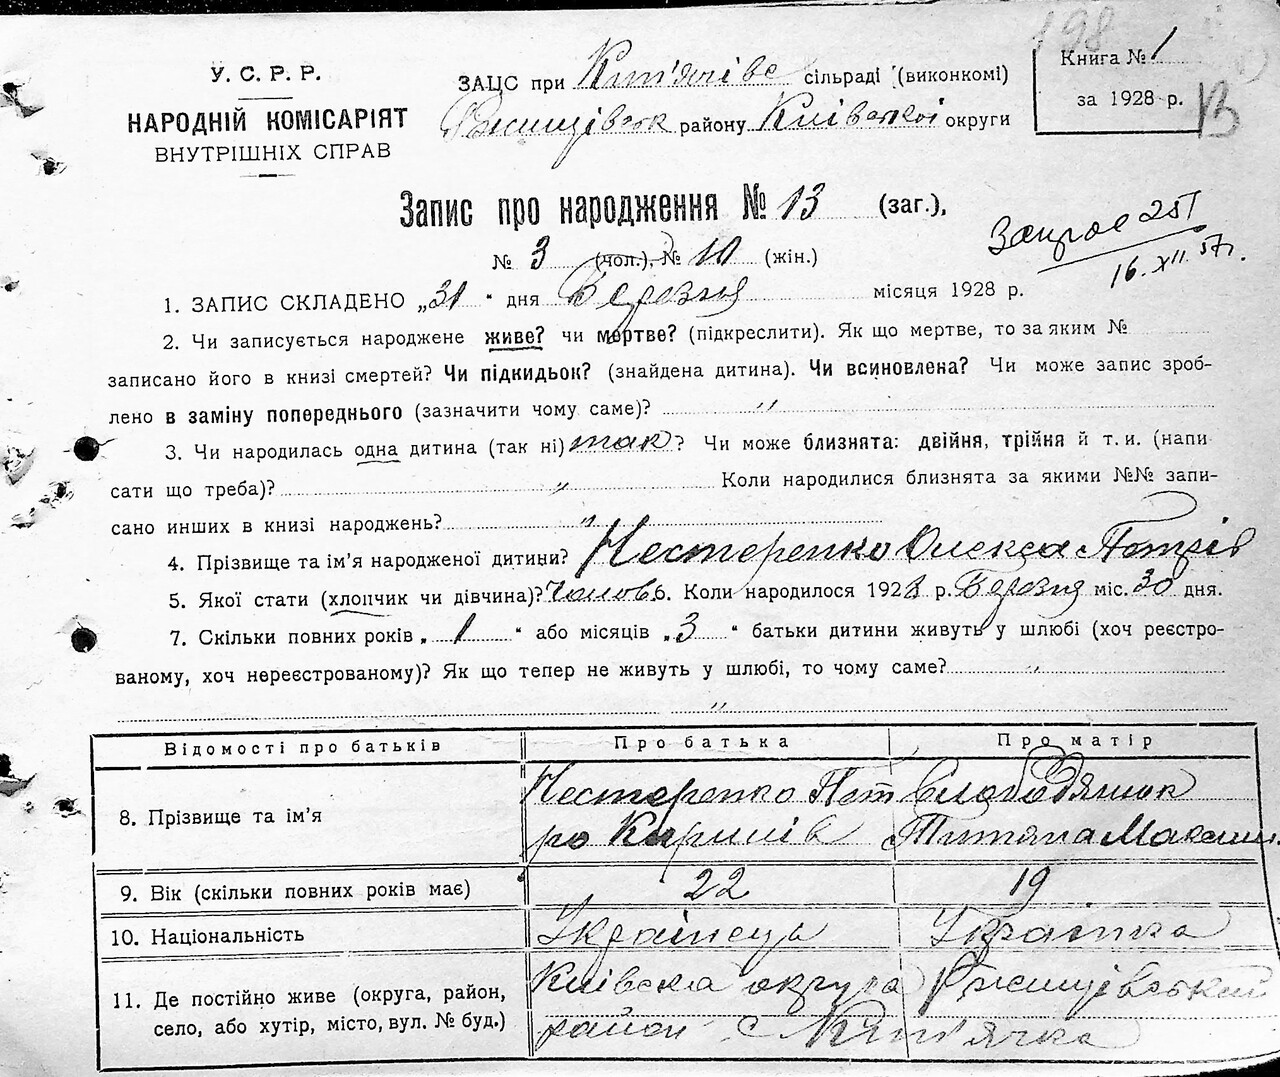 198
У. С. Р. Р.
НАРОДНІЙ КОМІСАРІЯТ
ВНУТРІШНІХ СПРАВ
ЗАЦС при Кип'ячівс сільраді (виконкомі)
Ржищівськ району Київської округи
Книга № 1
за 1928 р.
В
Запис про народження № 13 (заг.),
№ 3 (чол.), № 10 (жін.)
16. XII. 57г.
1. ЗАПИС СКЛАДЕНО „31" дня Березня місяця 1928 р.
2. Чи записується народжене живе? чи мертве? (підкреслити). Як що мертве, то за яким №
записано його в книзі смертей? Чи підкидьок? (знайдена дитина). Чи всиновлена? Чи може запис зроб-
лено в заміну попереднього (зазначити чому саме)? "
3. Чи народилась одна дитина (так ні) так? Чи може близнята: двійня, трійня й т. и. (напи
сати що треба)? " Коли народилися близнята за якими №№ запи-
сано инших в книзі народжень? "
4. Прізвище та ім'я народженої дитини? Нестеренко Олекса Петрів
5. Якої стати (хлопчик чи дівчина)? Чолов. 6. Коли народилося 1928 р. Березня міс. 30 дня.
7. Скільки повних років „ 1 " або місяців „ 3 " батьки дитини живуть у шлюбі (хоч реєстро-
ваному, хоч нереєстрованому)? Як що тепер не живуть у шлюбі, то чому саме? "
"
Відомості про батьків Про батька Про матір
8. Прізвище та ім'я
Нестеренко Пет
ро Кирилів
Слободянюк
Титяна Максим.
9. Вік (скільки повних років має) 22 19
10. Національність Українець Українка
11. Де постійно живе (округа, район,
село, або хутір, місто, вул. № буд.)
Київска округа Ржищівський
район с Кип'ячка